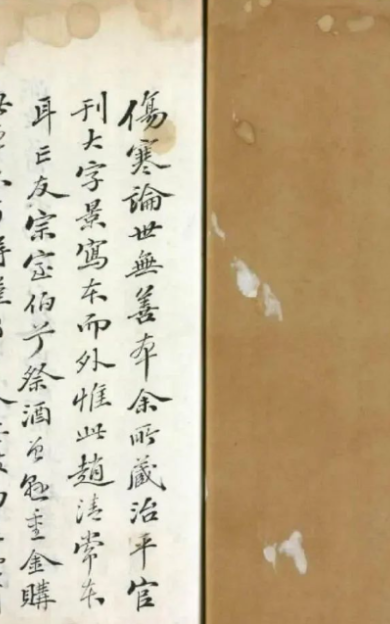 傷寒論世無善本余所藏治平官
刊大字景寫本而外惟此趙清常本
耳亡友宗室伯兮祭酒曾懸重金購